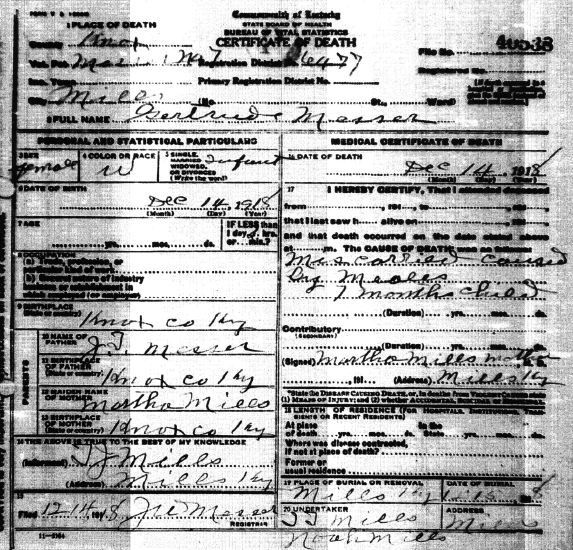 Commonwealth of Kentucky
STATE BOARD OF HEALTH
BUREAU OF VITAL STATISTICS
CERTIFICATE OF DEATH
1 PLACE OF DEATH
County Knox
File No. 40538
Registration District No. 6477
Primary Registration District No.
Registered No.
City Mills (No. St., Ward)
2 FULL NAME Gertrude Messer
PERSONAL AND STATISTICAL PARTICULARS
3 SEX female
4 COLOR OR RACE W
5 SINGLE, MARRIED, WIDOWED, OR DIVORCED (Write the word) Infant
6 DATE OF BIRTH
Dec 14, 1918
(Month) (Day) (Year)
7 AGE
yrs. mos. ds.
IF LESS than 1 day, hrs. or min.?
8 OCCUPATION
(a) Trade, profession, or particular kind of work
(b) General nature of industry
business or establishment in
which employed (or employer)
9 BIRTHPLACE
(State or country) Knox co Ky
PARENTS
10 NAME OF FATHER J. T. Messer
11 BIRTHPLACE OF FATHER
(State or country) Knox co Ky
12 MAIDEN NAME OF MOTHER Martha Mills
13 BIRTHPLACE OF MOTHER
(State or country) Knox co Ky
14 THE ABOVE IS TRUE TO THE BEST OF MY KNOWLEDGE
(Informant) T J Mills
(Address) Mills Ky
15
Filed 12-14, 1918 Messer
REGISTRAR
MEDICAL CERTIFICATE OF DEATH
16 DATE OF DEATH
Dec 14, 1918
(Month) (Day) (Year)
17 I HEREBY CERTIFY, That I attended deceased
from , 191 , to , 191 ,
that I last saw h alive on , 191 ,
and that death occurred on the date stated above
at m. The CAUSE OF DEATH was as follows:
Mis carried caused
by Measles
7 months child
(Duration) yrs. mos. ds.
Contributory
(SECONDARY)
(Duration) yrs. mos. ds.
(Signed) Martha Mills mother
, 191 (Address) Mills Ky
18 LENGTH OF RESIDENCE (FOR HOSPITALS, INSTITUTIONS, TRANSIENTS OR RECENT RESIDENTS)
At place
of death yrs. mos. ds. State yrs. mos. ds.
Where was disease contracted,
if not at place of death?
Former or
usual residence
19 PLACE OF BURIAL OR REMOVAL
Mills Ky
DATE OF BURIAL
20 UNDERTAKER
T J Mills
Noah Mills
ADDRESS
Mills